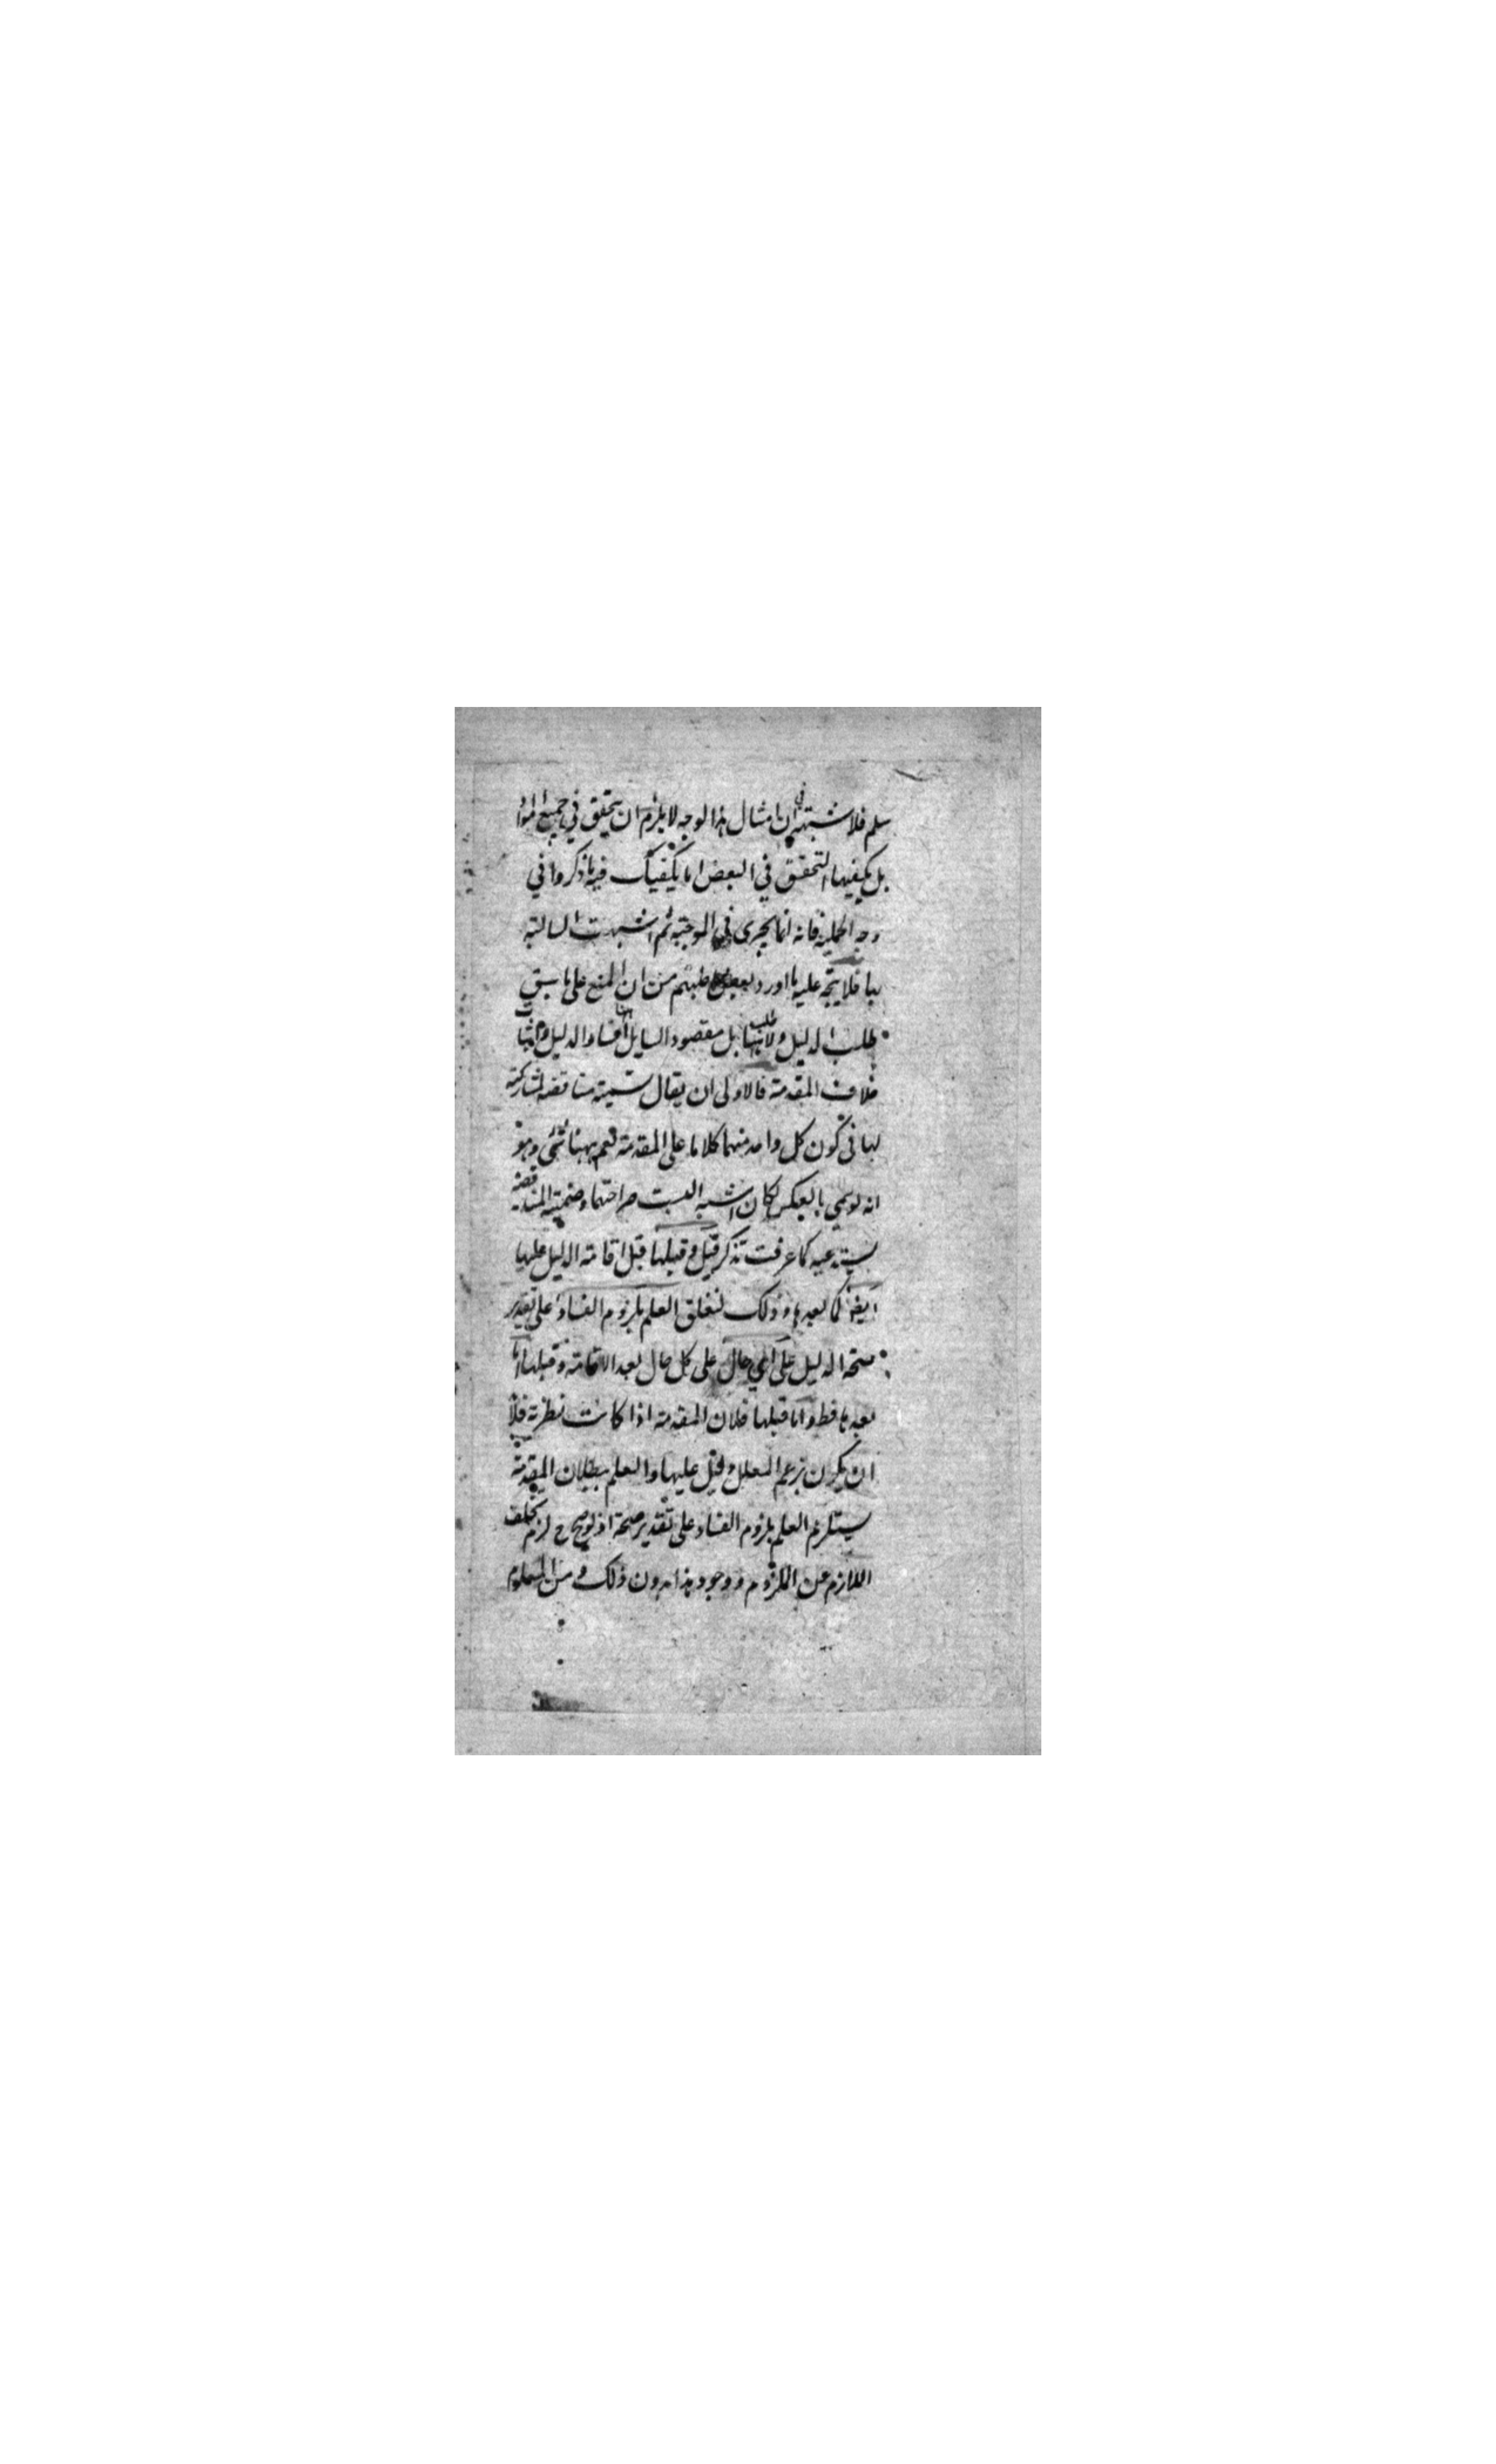 سلم فلا شبهة في ان امثال هذا الوجه لا يلزم ان يتحقق في جميع المواد
بل يكفيها التحقق في البعض اما يكفيك فيه ما ذكروا في
وجه الحملية فانه انما يجرى في الموجبة ثم اشبهت السالبة
بها فلا يتجه عليه ما اورد بعض من ان المنع على ما سبق
طلب الدليل ولا طلب ههنا بل مقصود السايل ههنا افساد الدليل واثبات
خلاف المقدمة فالاولى ان يقال تسمية مناقضة لمشاركته
لها في كون كل واحد منهما كلاما على المقدمة نعم ههنا شئ وهو
انه لو سمى بالعكس لكان اشبه البت صراحتها وضمنية المناقضة
يستدعيه كما عرفت تذكر قيل وقبلها قبل اقامة الدليل عليها
ايضا كما بعدها وذلك لتعلق العلم بلزوم الفساد على تقدير
صحة الدليل على اي حال على كل حال بعد الاقامة وقبلها اما
بعدها فظ واما قبلها فلان المقدمة اذا كانت نظرية فلابد
ان يكون بزعم المعلل دليل عليها والعلم ببطلان المقدمة
يستلزم العلم بلزوم الفساد على تقدير صحة اذ لو صح ح لزم تخلف
اللازم عن الملزوم ووجود هذا بدون ذلك ومن المعلوم